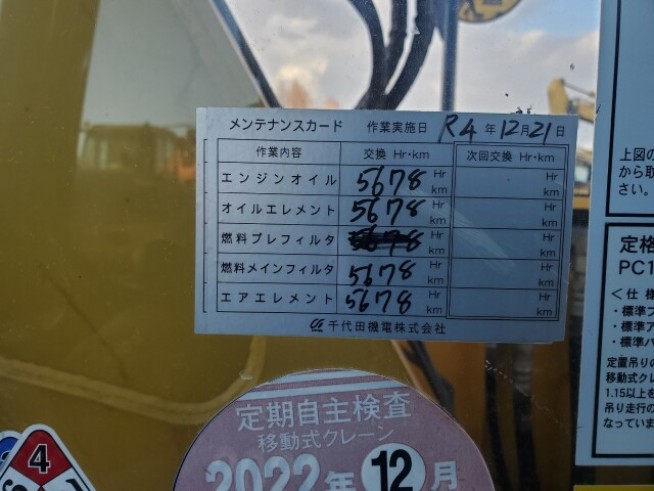 メンテナンスカード 作業実施日 R4年12月21日
作業内容 交換 Hr・km 次回交換 Hr・km
エンジンオイル 5678 Hr km Hr km
オイルエレメント 5678 Hr km Hr km
燃料プレフィルタ 5678 Hr km Hr km
燃料メインフィルタ 5678 Hr km Hr km
エアエレメント 5678 Hr km Hr km
千代田機電株式会社
定期自主検査
移動式クレーン
2022年 12月
4
上図の
から取
さい。
定格
PC1
＜仕様
・標準ブ
・標準ア
・標準バ
定置吊りの
移動式クレ
1.15以上を
吊り走行の
なっていま